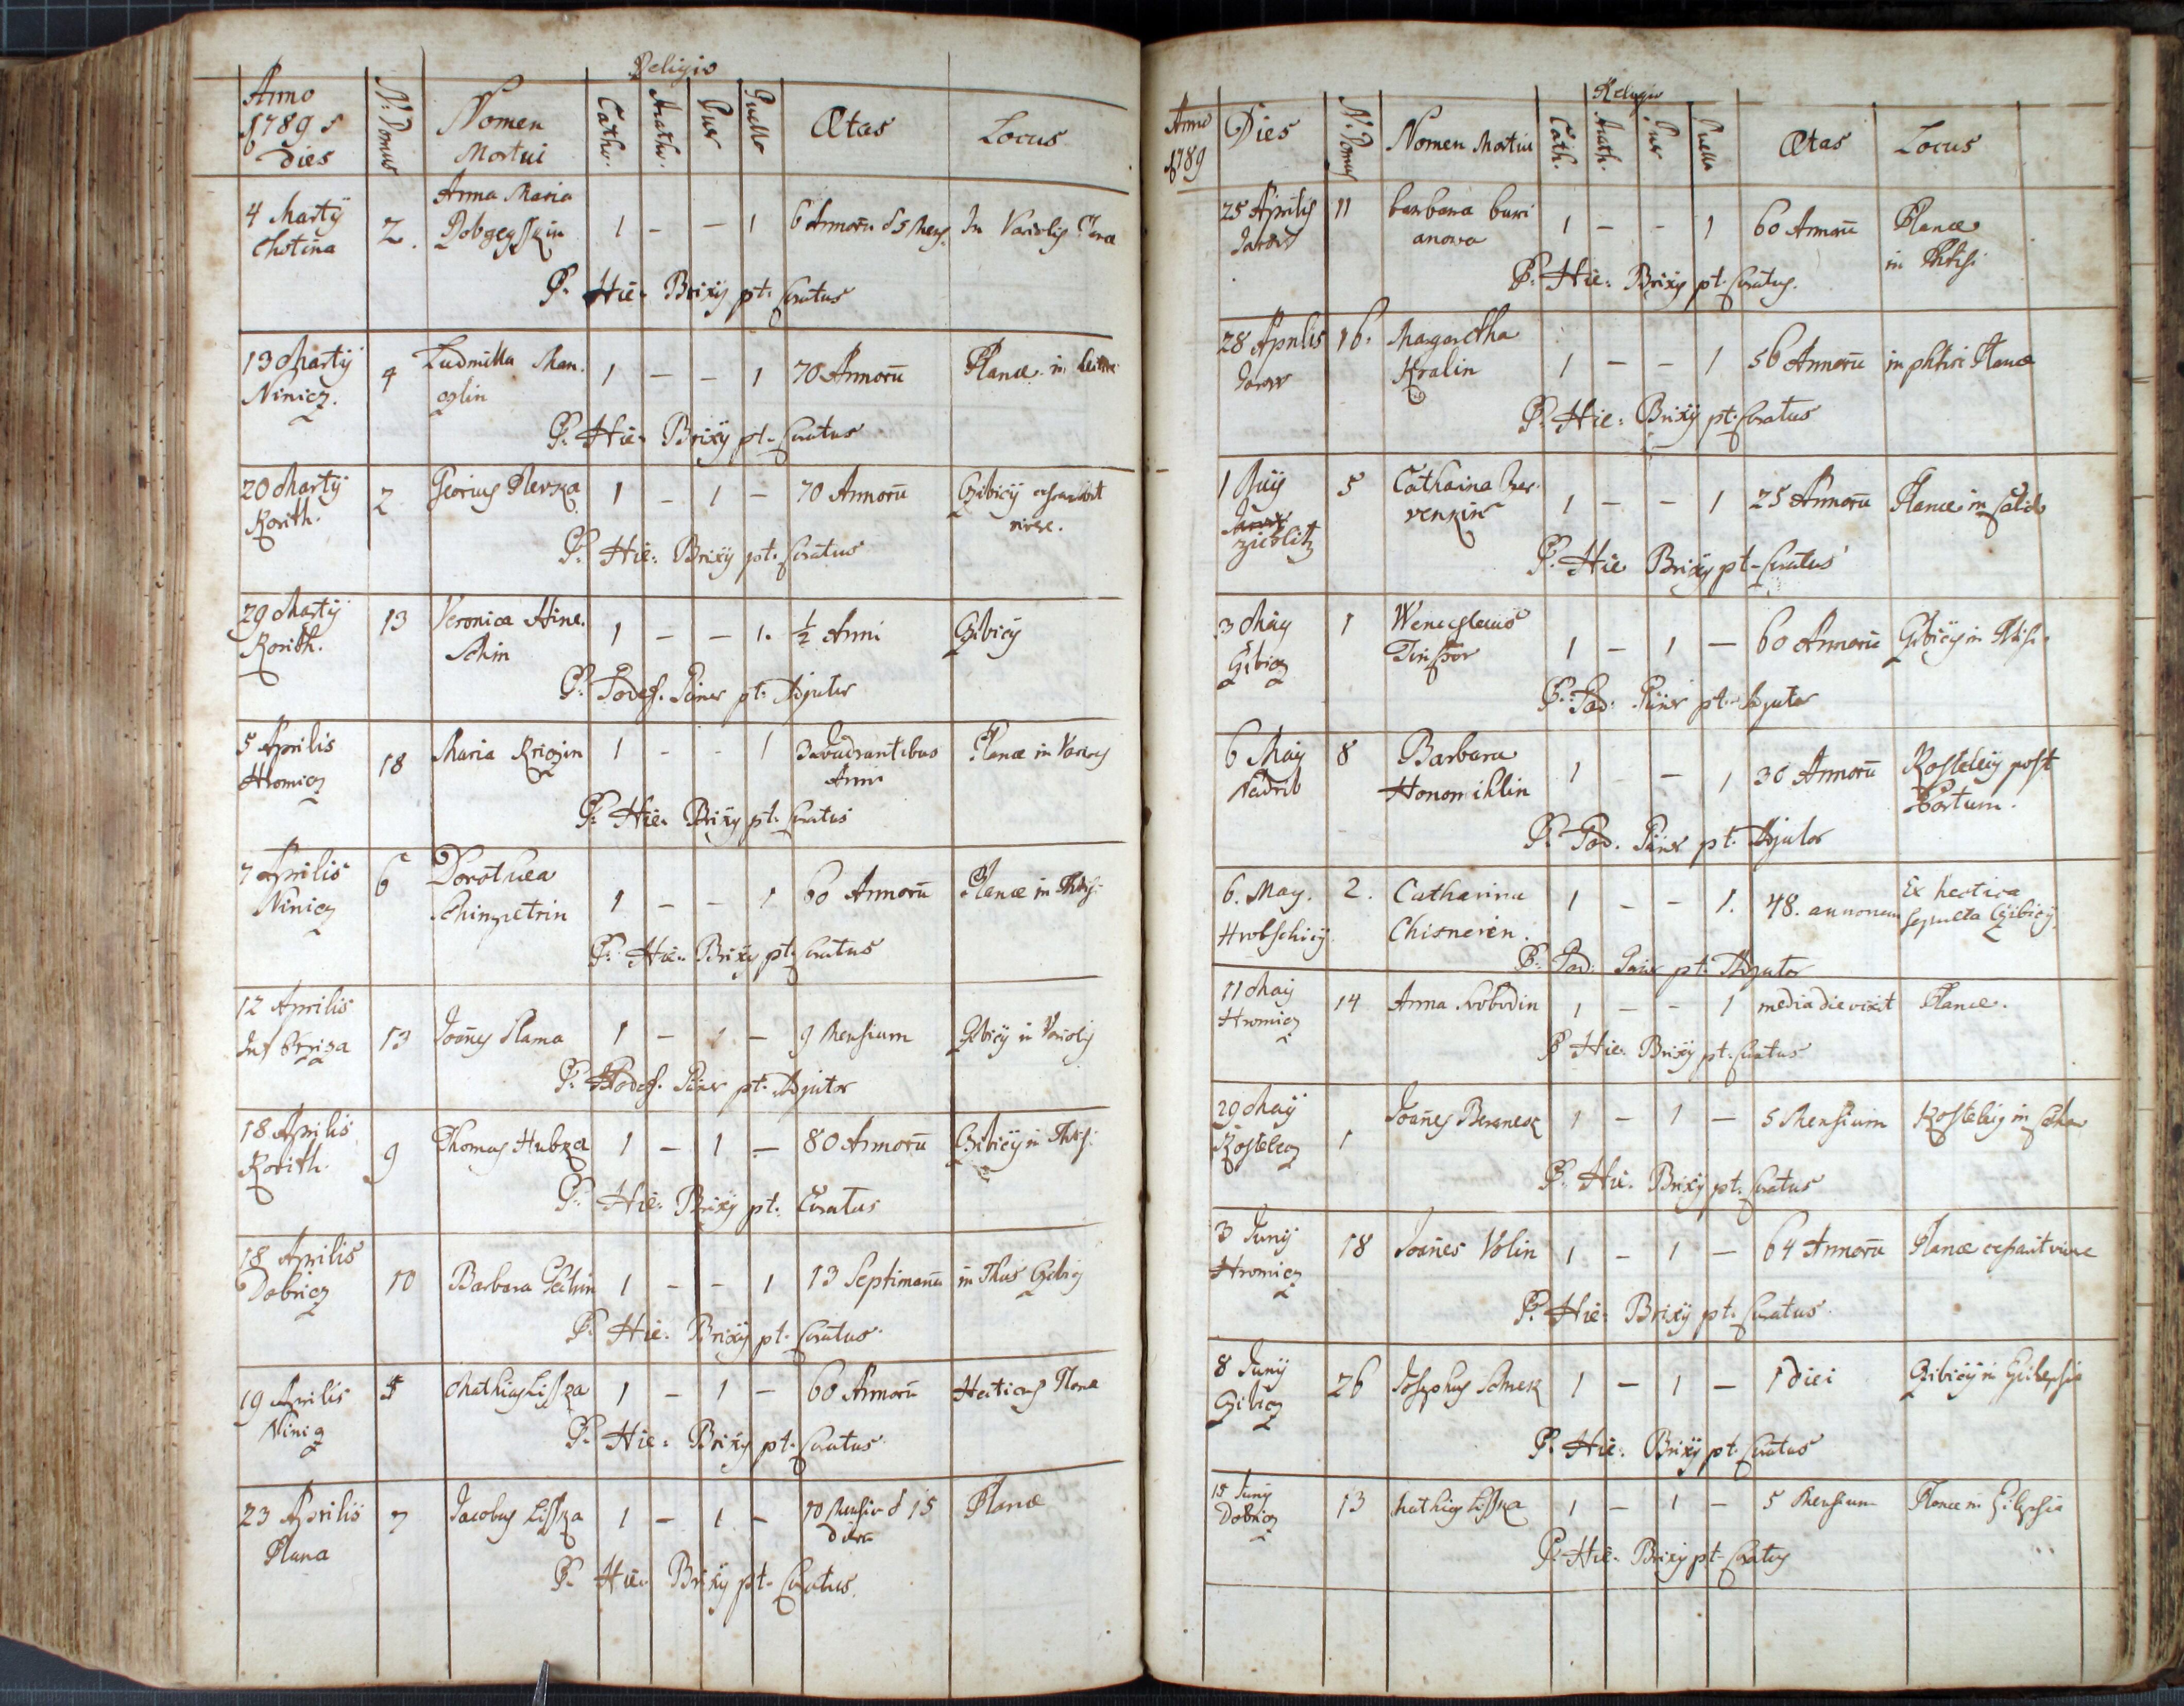 Religio
Anno 1789 Dies N: Domus Nomen Mortui Cathr. Acath. Puer Puella Ætas Locus
4 Martÿ Chotina 2. Anna Maria 1 - - 1 6 Annorũ & 5 Mens. In Variolis Planæ
P. Hie: Brixÿ pt. Curatus
13 Martÿ Ninicz 4 Ludmilla Man. 1 - - 1 70 Annorũ Planæ in
P. Hie: Brixÿ pt. Curatus
20 Martÿ Korith. 2 Georius Plevka 1 - 1 - 70 Annorũ Gzibicÿ cessavit vivere.
P. Hie: Brixÿ pt. Curatus
29 Martÿ Korith. 13 Veronica Hine. Schin 1 - - 1. ½ Anni Gzibicÿ
P. pt. Adjutor
5 Aprilis Hromicz 18 Maria Kriczin 1 - - 1 3 quadrantibus Anni Planæ in Varioly
P. Hie: Brixÿ pt. Curatus
7 Aprilis Ninicz 6 Dorothea Schinpetrin 1 - - 1 60 Annorũ Planæ in Phtisi
P. Hie: Brixÿ pt. Curatus
12 Aprilis Inf Brzisa 13 Joañes Slama 1 - 1 - 9 Mensium Gzibicÿ in Varioly
P. pt. Adjutor
18 Aprilis Korith. 9 Thomas Hubka 1 - 1 - 80 Annorũ Gzibicÿ in Phtisi
P. Hie: Brixÿ pt. Curatus
18 Aprilis Dobricz 10 Barbara 1 - - 1 13 Septimanũ in Gzibicÿ
P. Hie: Brixÿ pt. Curatus
19 Aprilis Ninicz 5 Mathias Lisska 1 - 1 - 60 Annorũ Hecticus Planæ
P. Hie: Brixÿ pt. Curatus
23 Aprilis Plana 7 Jacobus Lisska 1 - 1 - 10 Mensiũ & 15 dierũ Planæ
P. Hie: Brixÿ pt. Curatus
Religio
Anno 1789 Dies N: Domus Nomen Mortui Cath. Acath. Puer Puella Ætas Locus
25 Aprilis Jarow 11 barbara buri anova 1 - - 1 60 Annorũ Planæ in Phtisi
P. Hie: Brixÿ pt. Curatus.
28 Aprilis Jarow 16. Margaretha Kralin 1 - - 1 56 Annorũ in phtisi Planæ
P. Hie: Brixÿ pt. Curatus
1 5 Catharina Czer. venkin 1 - - 1 25 Annorũ Planæ in
P. Hie Brixÿ pt. Curatus
3 Maÿ Gzibicz 1 Wenceslaus 1 - 1 - 60 Annorũ Gzibicÿ in Phtisi
P. pt. Adjutor
6 Maÿ Nadrib 8 Barbara Honomihlin 1 - - 1 30 Annorũ Kostelcÿ post Partum.
P. pt. Adjutor
6. May. Hrobschicÿ 2. Catharina Chisnerin. 1 - - 1. 48. annorum Ex hectica sepulta Gzibicÿ.
P. pt. Adjutor
11 Maÿ Hromicz 14 Anna Svobodin 1 - - 1 media die vixit Planæ.
P. Hie: Brixÿ pt. Curatus
29 Maÿ Kostelcz 1 Joañes Beranek 1 - 1 - 5 Mensium Kostelcÿ in
P. Hie: Brixÿ pt. Curatus
3 Junÿ Hromicz 18 Joañes Volin 1 - 1 - 64 Annorũ Planæ cessavit vivere
P. Hie: Brixÿ pt. Curatus.
8 Junÿ Gzibicz 26 Josephus 1 - 1 - 1 diei Gzibicÿ in Epilepsia
P. Hie: Brixÿ pt. Curatus
15 Junÿ Dobricz 13 Mathias Lisska 1 - 1 - 5 Mensium Planæ in Epilepsia
P. Hie: Brixÿ pt. Curatus